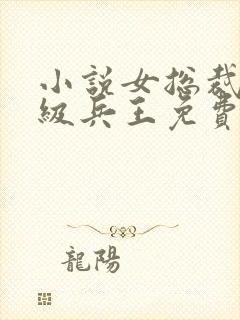 小説女総裁
級兵王免費
龍陽